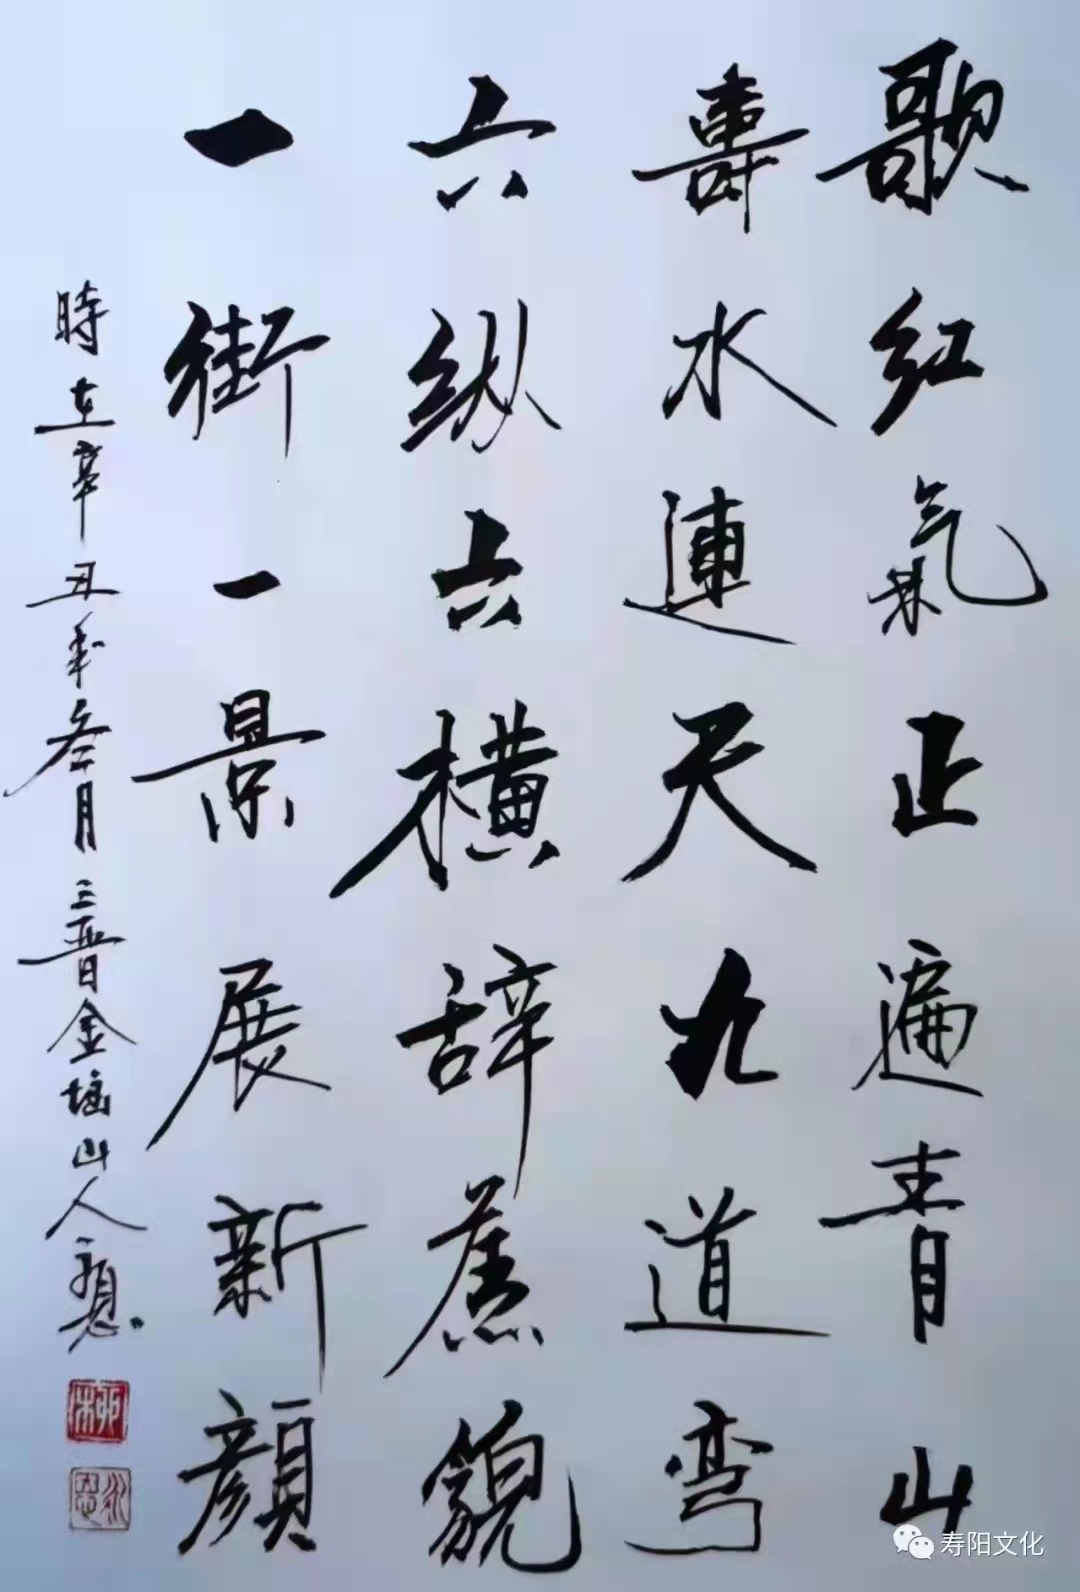 歌红氣正遍青山
壽水連天九道弯
六纵六横辞舊貌
一街一景展新顔
時在辛丑年叁月三晉金瑶山人
柳
寿阳文化